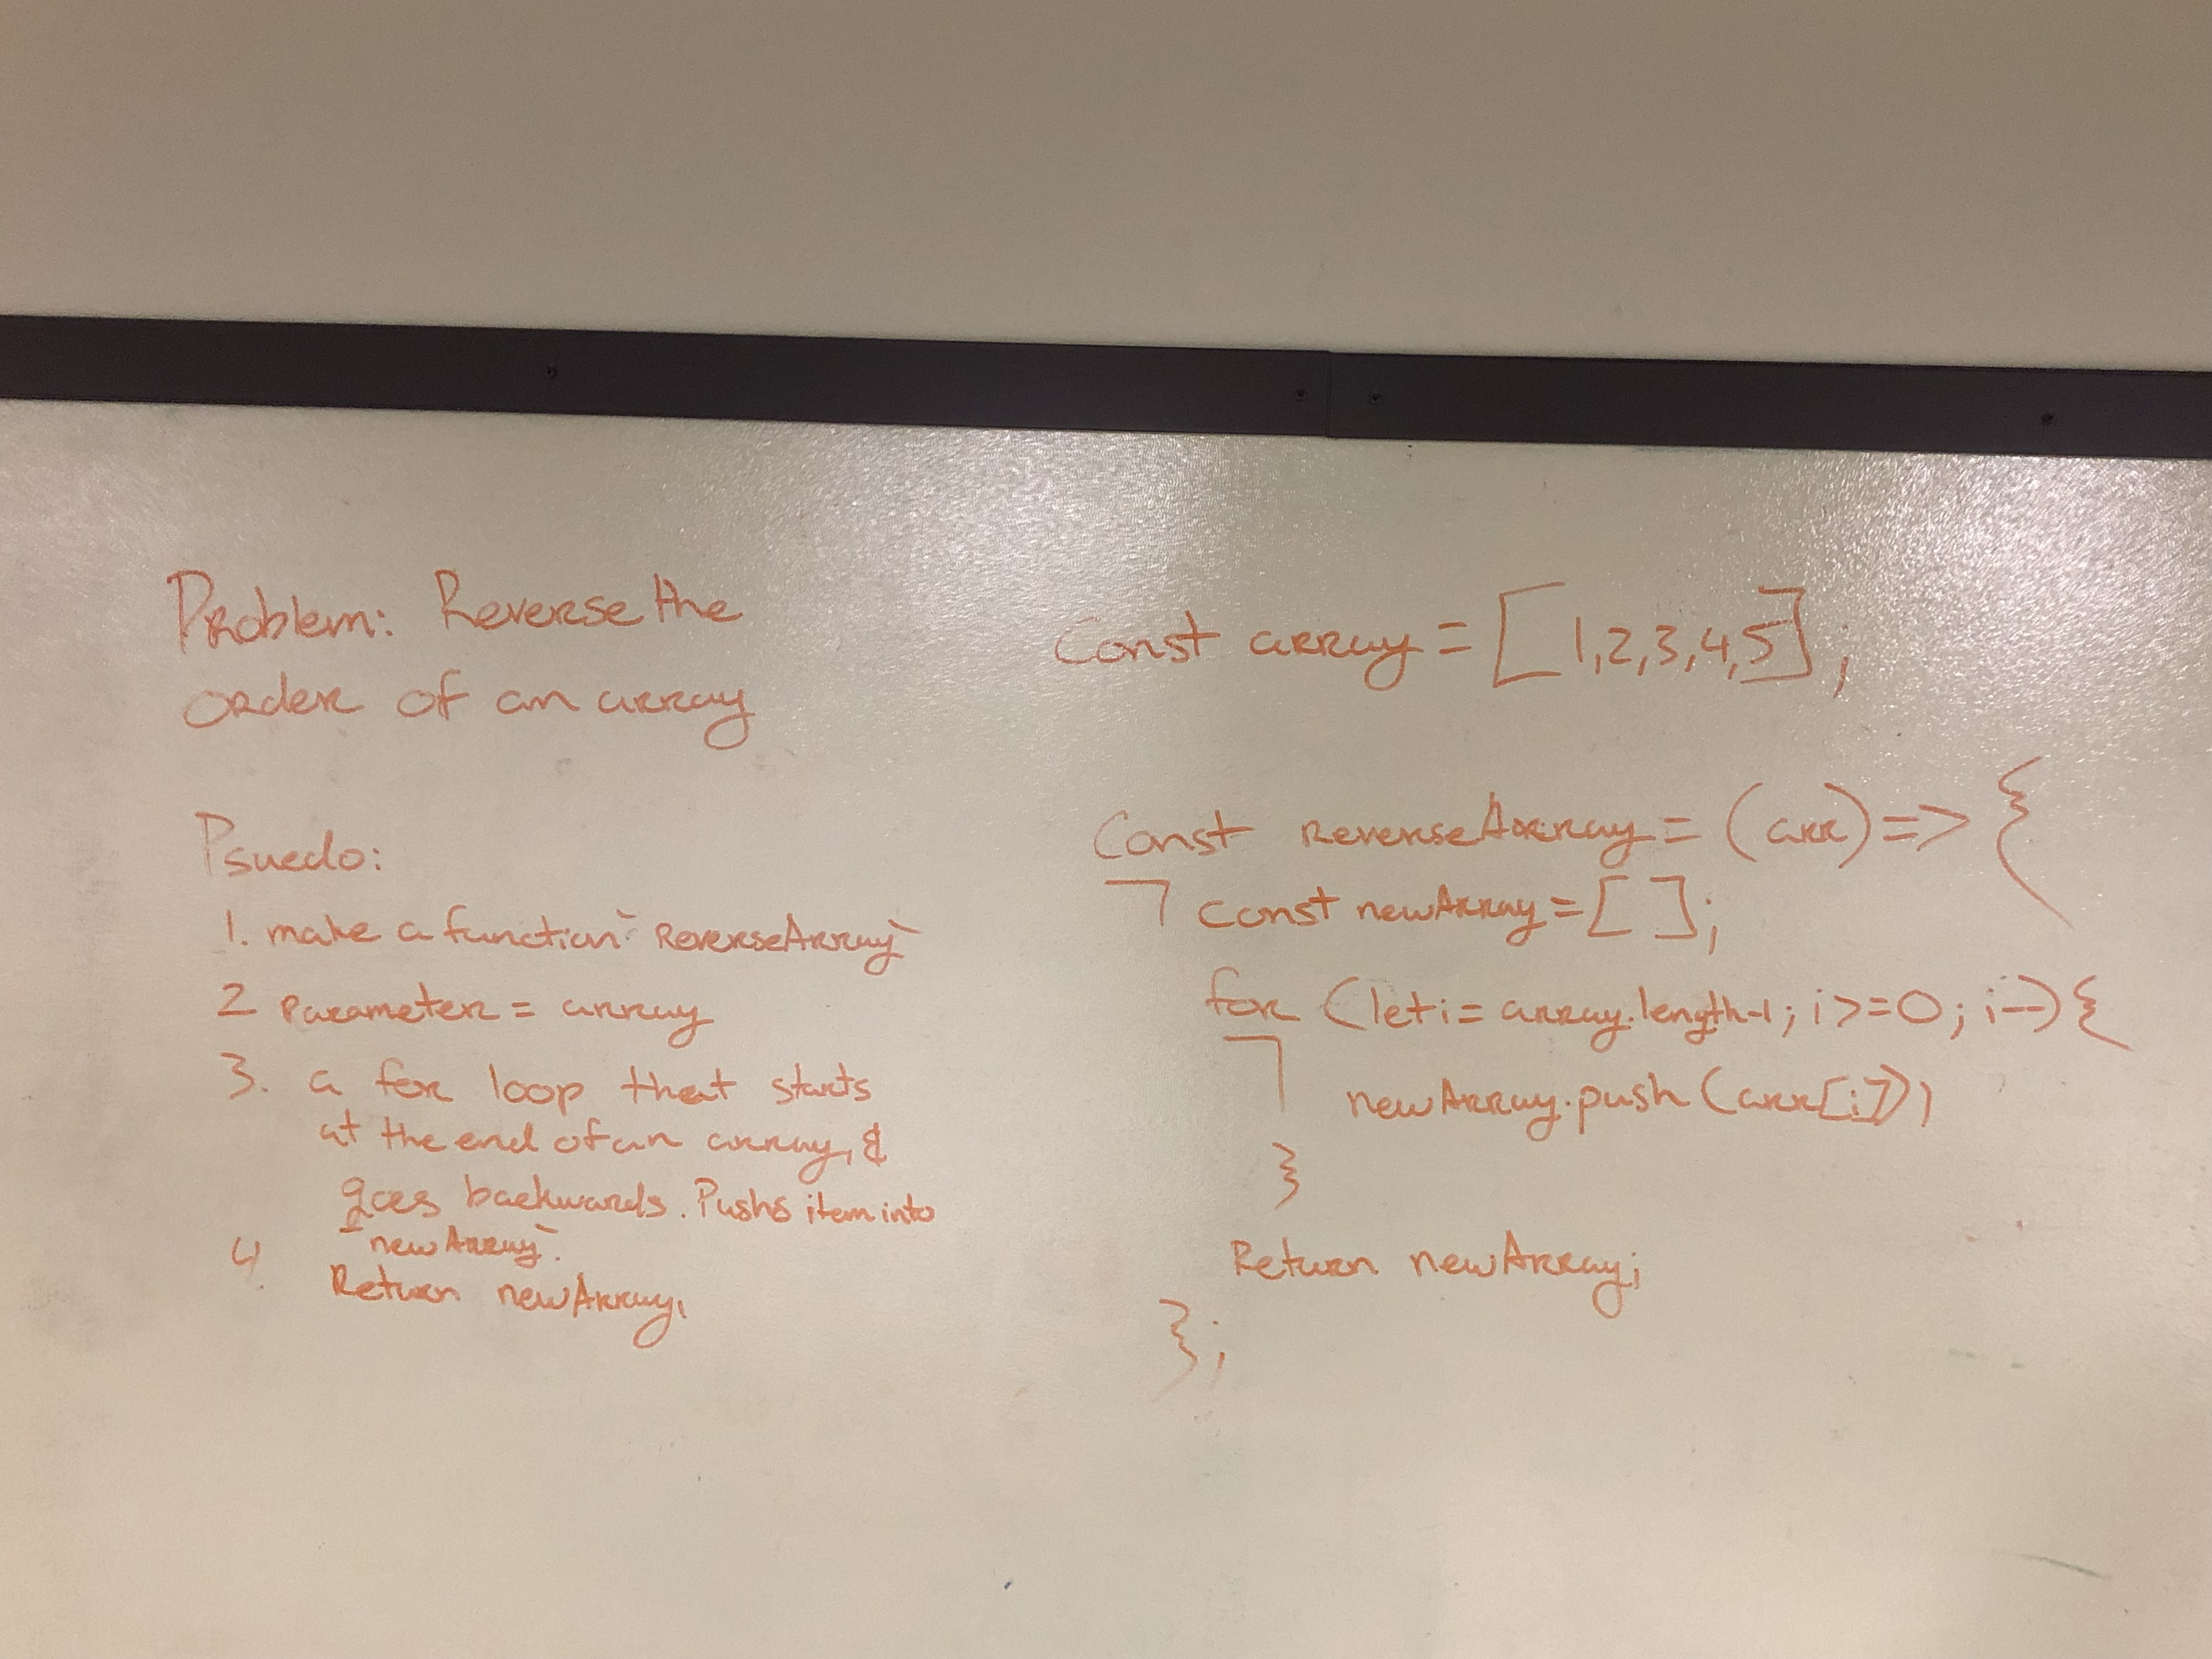 Problem: Reverse the
order of an array
Psuedo:
1. make a function `ReverseArray`
2 Parameter = array
3. a for loop that starts
at the end of an array, &
goes backwards. Pushs item into
`newArray`.
4 Return newArray,
Const array = [1,2,3,4,5];
Const ReverseArray = (arr) => {
const newArray = [ ];
for (let i = array.length-1; i >= 0; i--) {
newArray.push(arr[i]);
}
Return newArray;
};